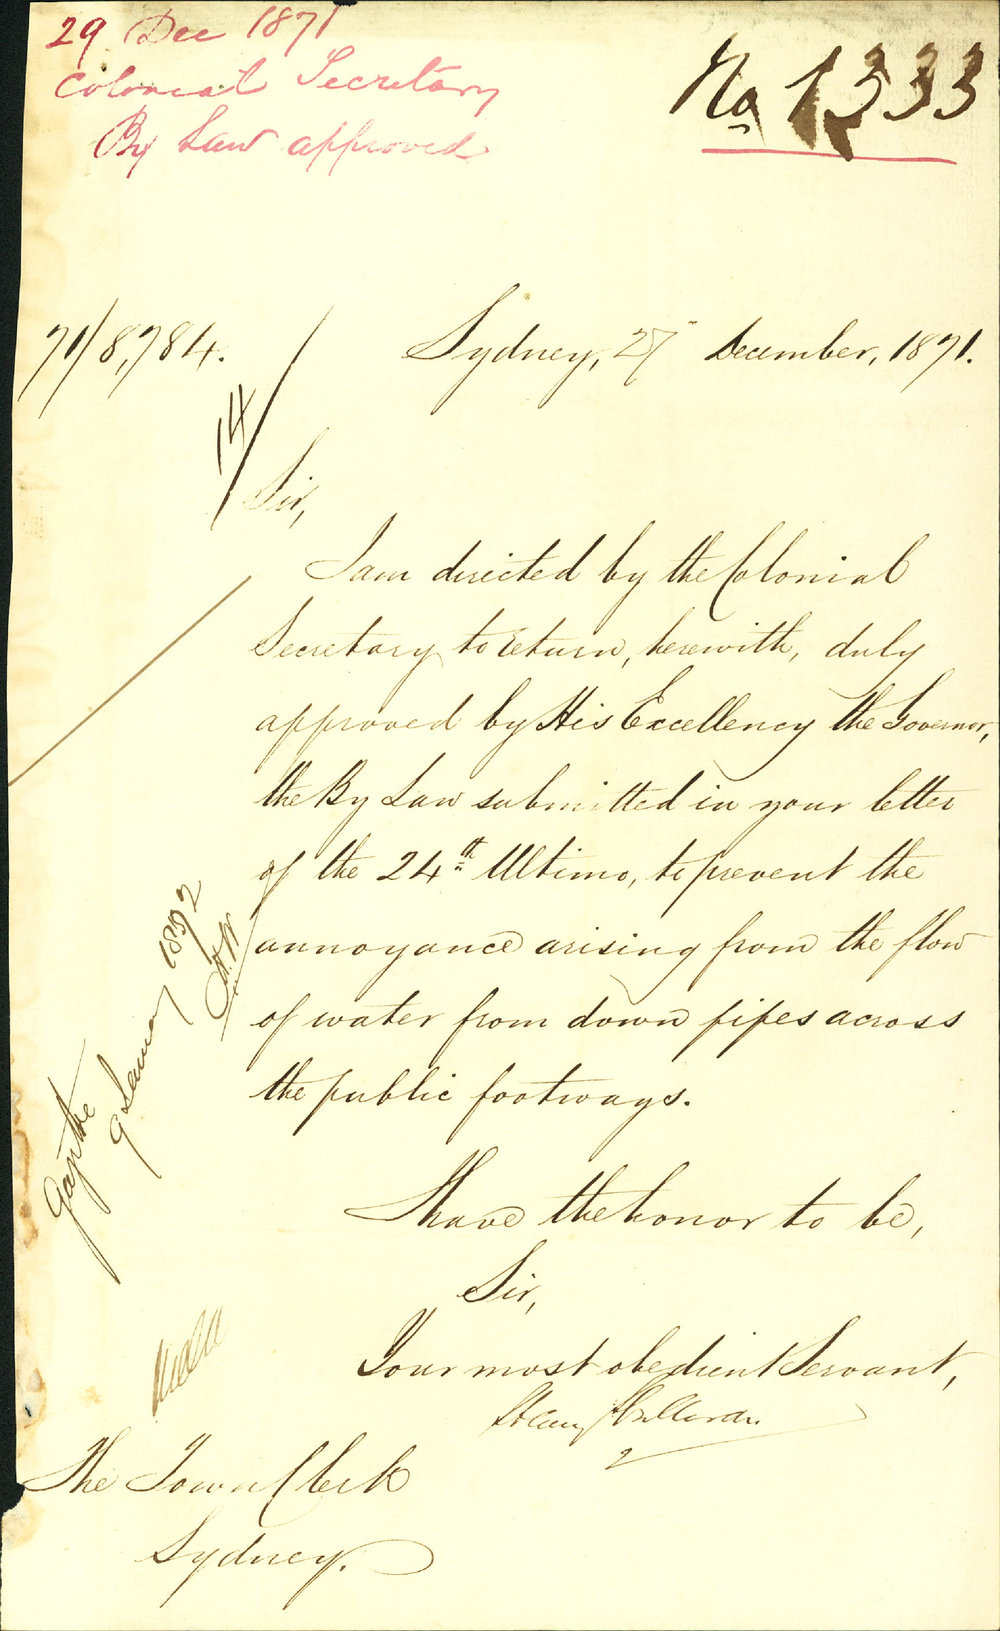 29 Dec 1871
Colonial Secretary
By Law approved
No 1333
71/8,784.
14
Sydney, 27 December, 1871.
Sir,
I am directed by the Colonial
Secretary to return, herewith, duly
approved by His Excellency the Governor,
the By Law submitted in your letter
of the 24th Ultimo, to prevent the
annoyance arising from the flow
of water from down pipes across
the public footways.
I have the honor to be,
Sir,
Your most obedient Servant,
Henry Halloran
The Town Clerk
Sydney.